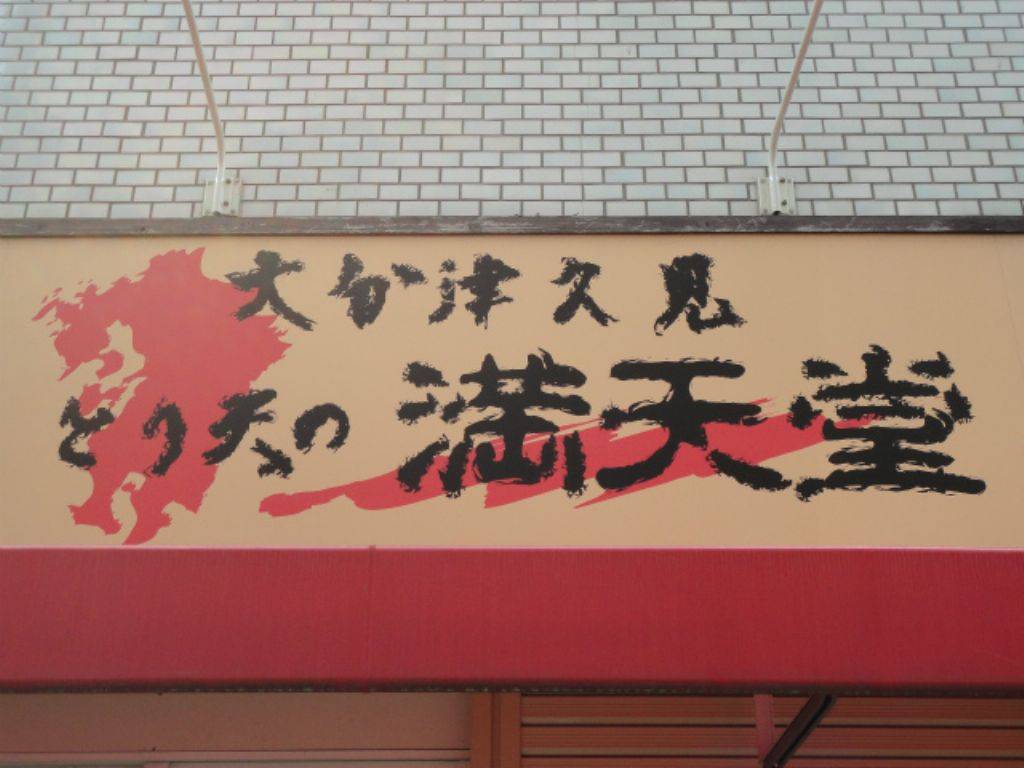 大分津久見
とり天の満天堂